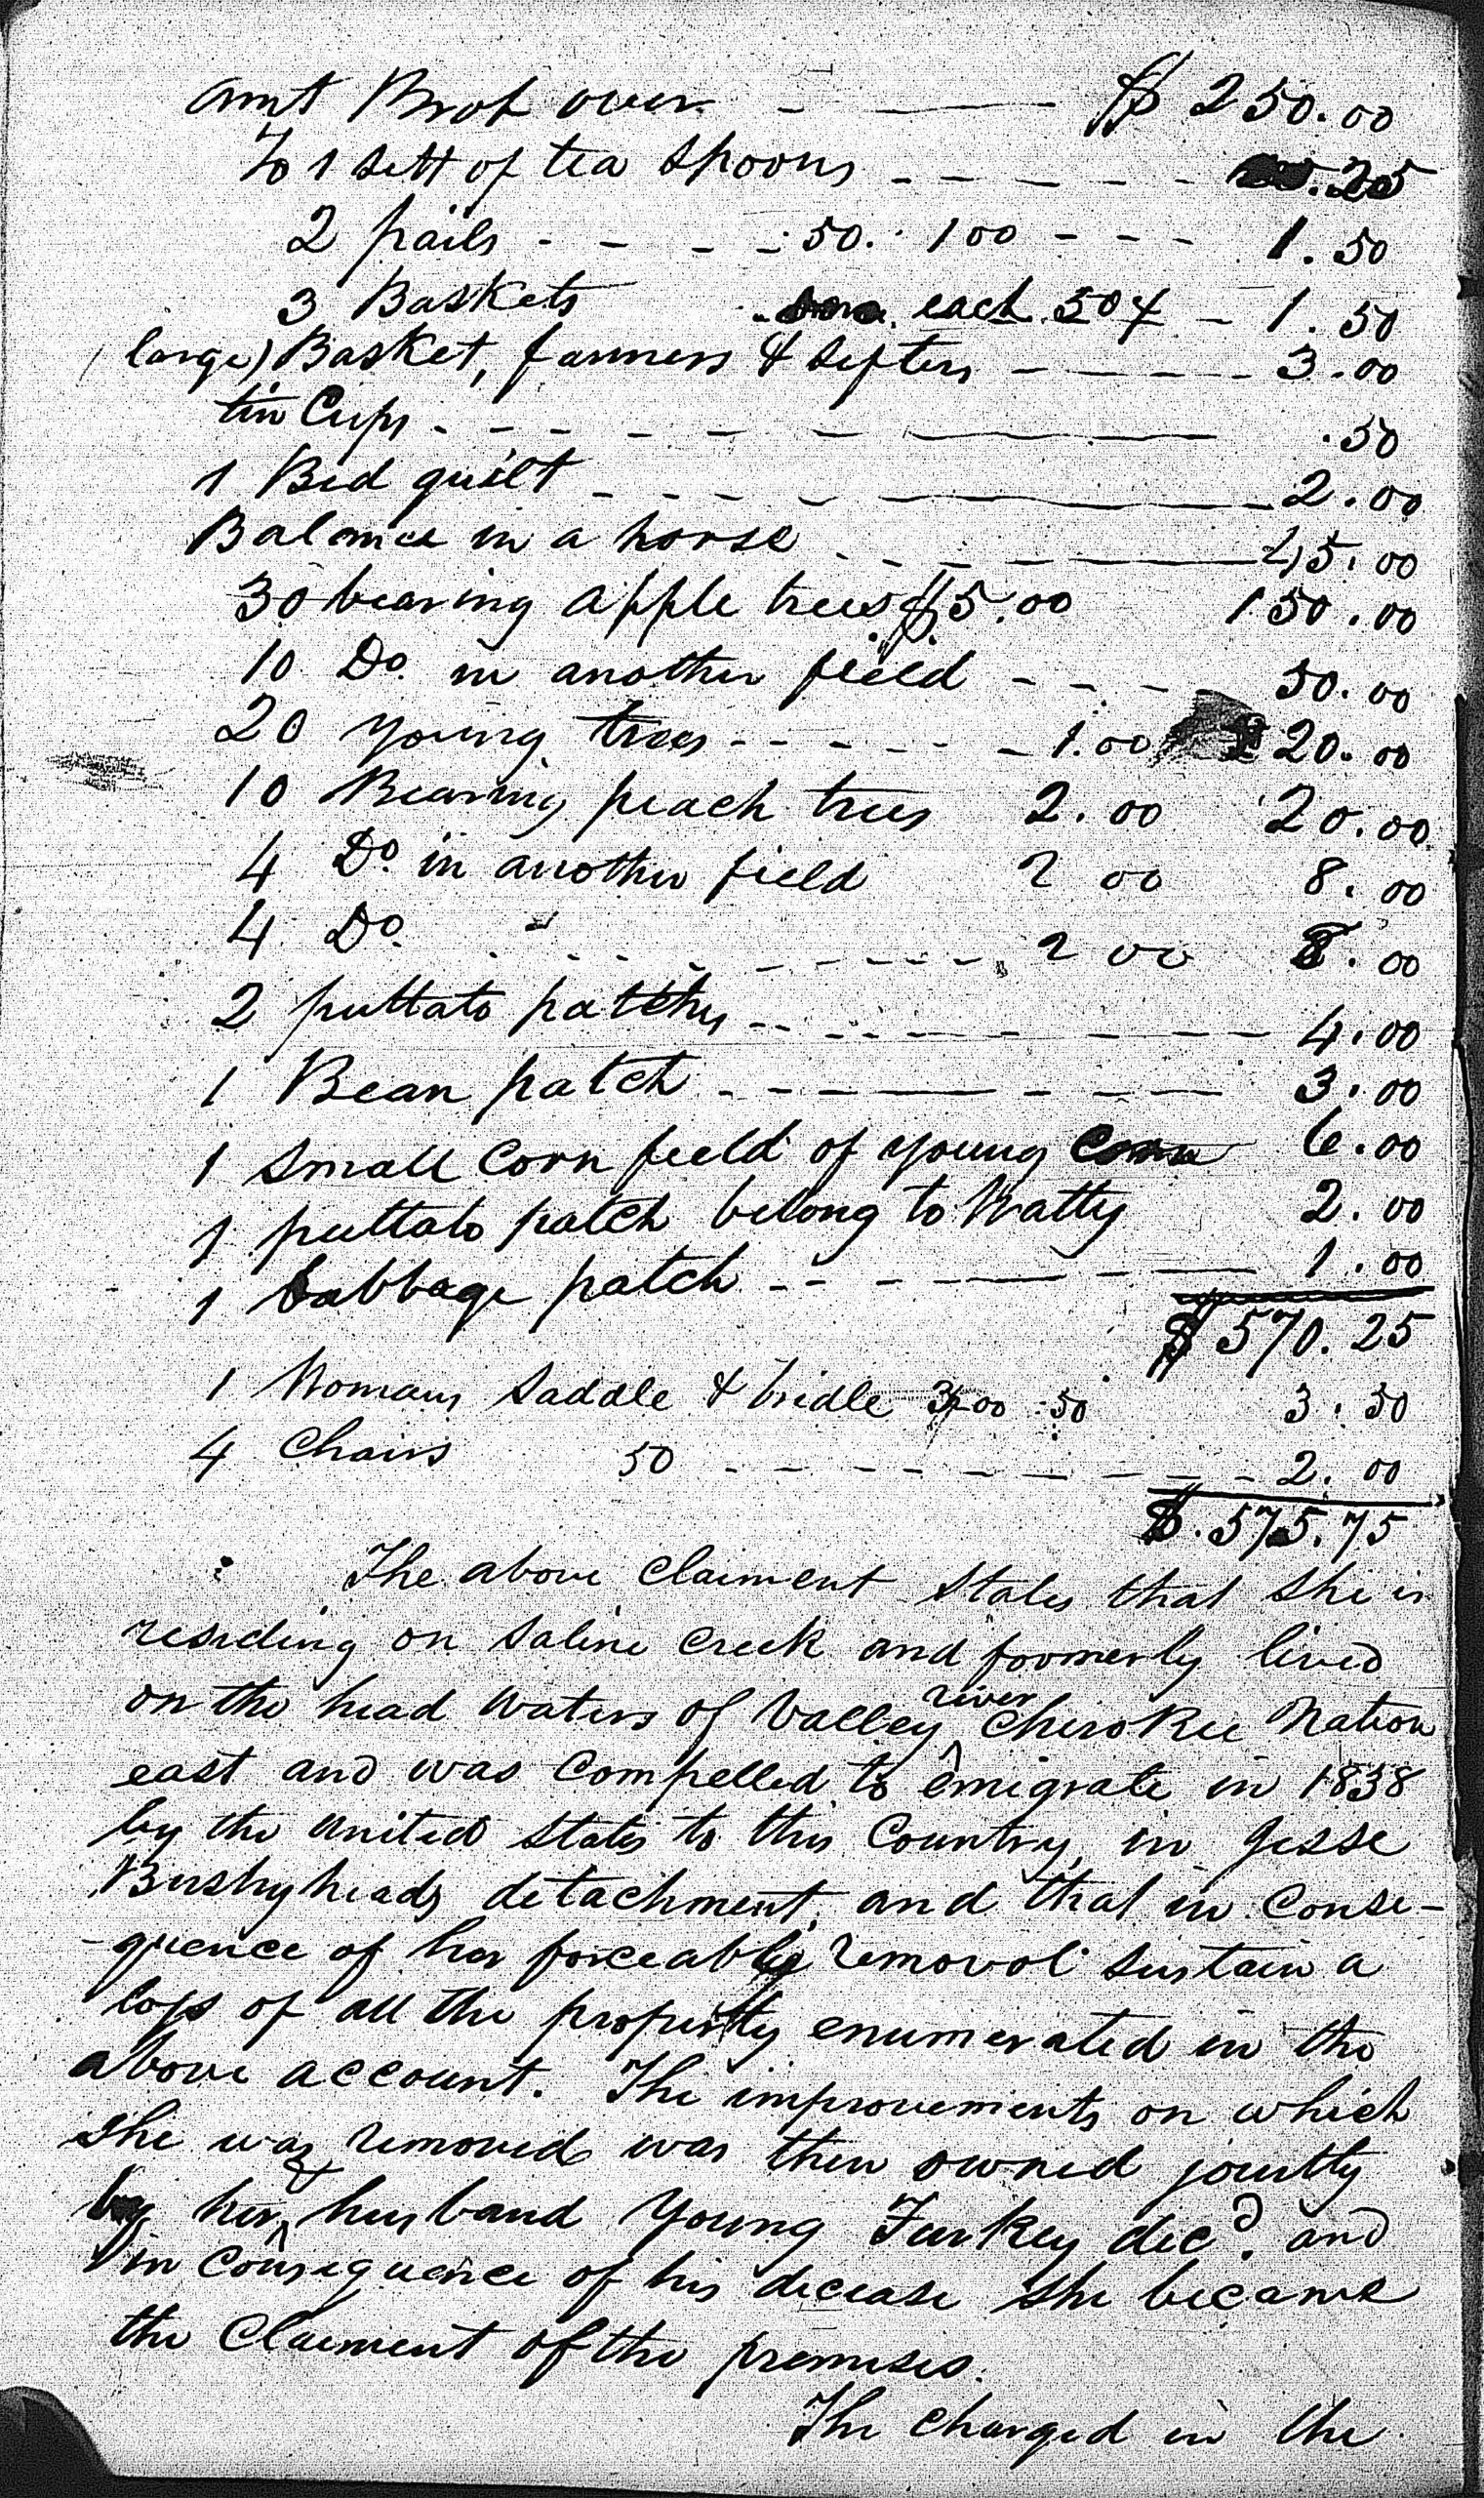 Amt Brot over - — $ 250.00
To 1 sett of tea spoons - - - - - .25
2 pails - - - - .50. 1 00 - - - 1.50
3 Baskets each 50 - 1.50
large) Basket, fanners & sifters - - - - 3.00
tin Cups - - - - - - — .50
1 Bed quilt - - - - — 2.00
Balance in a horse - - - — 25.00
30 bearing apple trees $5.00 150.00
10 Do. in another field - - - 50.00
20 young trees - - - - - - 1.00 $ 20.00
10 Bearing peach trees 2.00 20.00
4 Do. in another field 2 00 8.00
4 Do. " - - - - - - - 2 00 8.00
2 puttato patches - - - - - - - - 4.00
1 Bean patch - - - — - - - 3.00
1 Small Corn field of young Corn 6.00
1 puttato patch belong to Watty 2.00
1 Cabbage patch - - - — - — 1.00
$ 570.25
1 Womans Saddle & bridle 3.00 .50 3.50
4 Chairs 50 - - - - - - - - - 2.00
$.575.75
The above Claiment States that she is
residing on Saline Creek and formerly lived
river
on the head waters of Valley ^ Cherokee Nation
east and was Compelled to emigrate in 1838
by the united States to this Country in Jesse
Bushyheads detachment, and that in Conse-
-quence of her forceably removol sustain a
loss of all the property enumerated in the
above account. The improvements on which
She was removed was then owned jointly
&
by her ^ husband Young Turkey decd. and
in Consequence of his decease she became
the Claiment of the premises.
The Charged in the